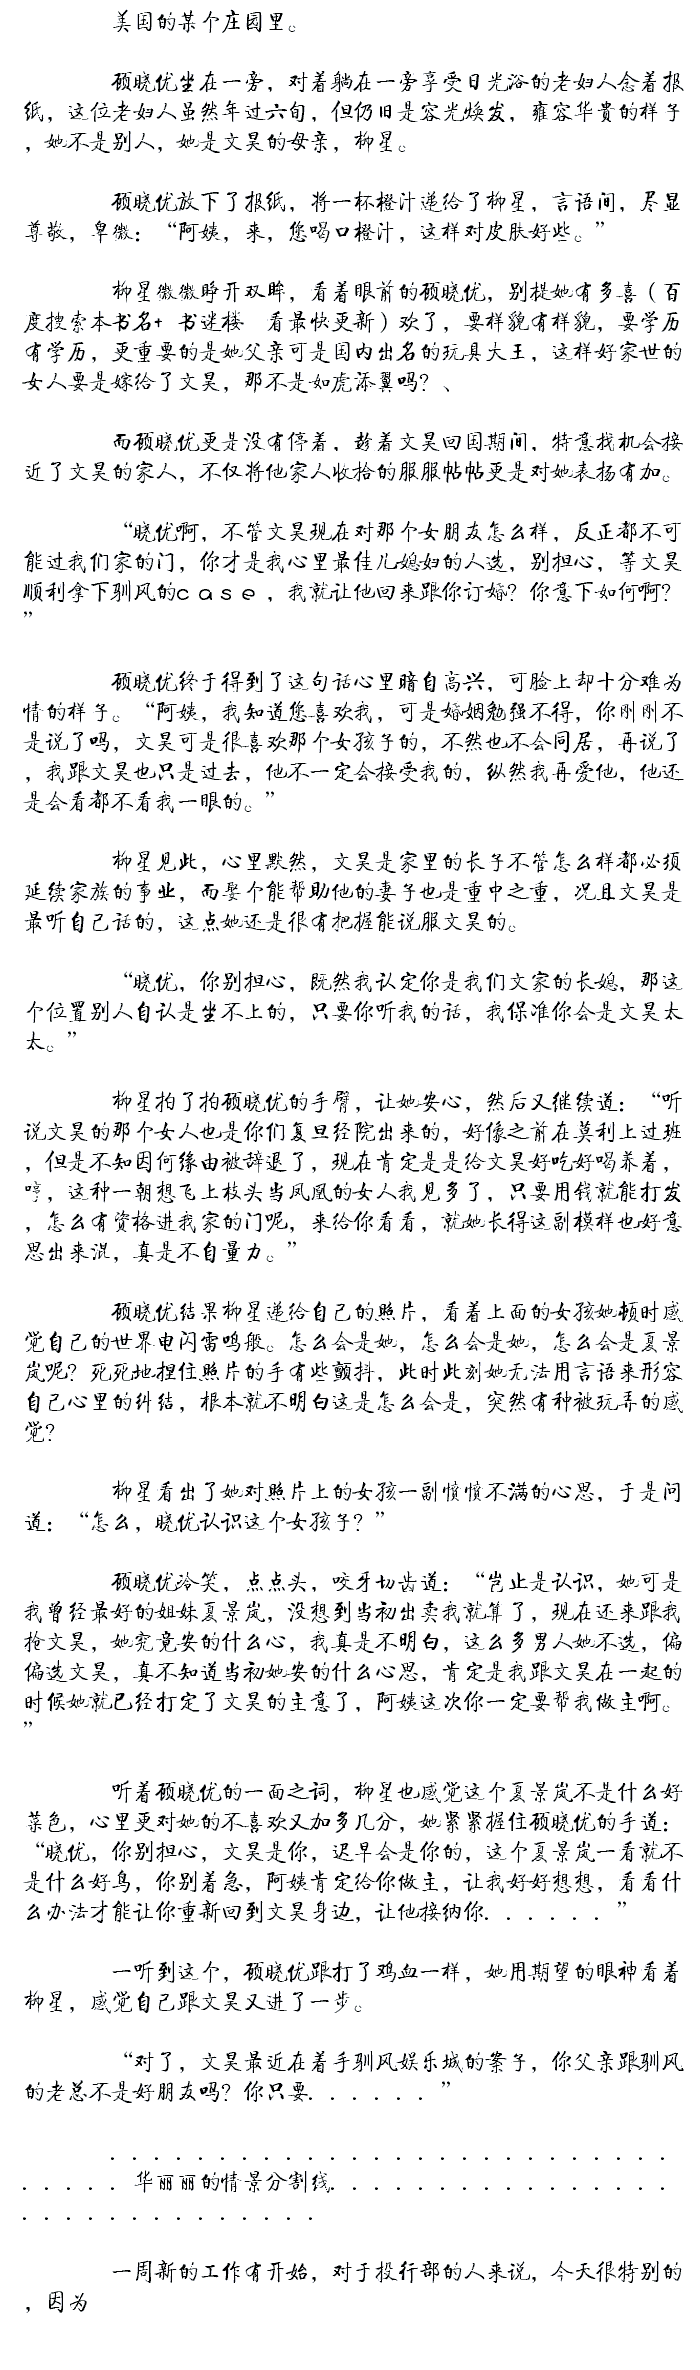 美国的某个庄园里。
顾晓优坐在一旁，对着躺在一旁享受日光浴的老妇人念着报
纸，这位老妇人虽然年过六旬，但仍旧是容光焕发，雍容华贵的样子
，她不是别人，她是文昊的母亲，柳星。
顾晓优放下了报纸，将一杯橙汁递给了柳星，言语间，尽显
尊敬，卑微：“阿姨，来，您喝口橙汁，这样对皮肤好些。”
柳星微微睁开双眸，看着眼前的顾晓优，别提她有多喜（百
度搜索本书名+ 书迷楼 看最快更新）欢了，要样貌有样貌，要学历
有学历，更重要的是她父亲可是国内出名的玩具大王，这样好家世的
女人要是嫁给了文昊，那不是如虎添翼吗？、
而顾晓优更是没有停着，趁着文昊回国期间，特意找机会接
近了文昊的家人，不仅将他家人收拾的服服帖帖更是对她表扬有加。
“晓优啊，不管文昊现在对那个女朋友怎么样，反正都不可
能过我们家的门，你才是我心里最佳儿媳妇的人选，别担心，等文昊
顺利拿下驯风的ｃａｓｅ，我就让他回来跟你订婚？你意下如何啊？
”
顾晓优终于得到了这句话心里暗自高兴，可脸上却十分难为
情的样子。“阿姨，我知道您喜欢我，可是婚姻勉强不得，你刚刚不
是说了吗，文昊可是很喜欢那个女孩子的，不然也不会同居，再说了
，我跟文昊也只是过去，他不一定会接受我的，纵然我再爱他，他还
是会看都不看我一眼的。”
柳星见此，心里默然，文昊是家里的长子不管怎么样都必须
延续家族的事业，而娶个能帮助他的妻子也是重中之重，况且文昊是
最听自己话的，这点她还是很有把握能说服文昊的。
“晓优，你别担心，既然我认定你是我们文家的长媳，那这
个位置别人自认是坐不上的，只要你听我的话，我保准你会是文昊太
太。”
柳星拍了拍顾晓优的手臂，让她安心，然后又继续道：“听
说文昊的那个女人也是你们复旦经院出来的，好像之前在莫利上过班
，但是不知因何缘由被辞退了，现在肯定是是给文昊好吃好喝养着，
哼，这种一朝想飞上枝头当凤凰的女人我见多了，只要用钱就能打发
，怎么有资格进我家的门呢，来给你看看，就她长得这副模样也好意
思出来混，真是不自量力。”
顾晓优结果柳星递给自己的照片，看着上面的女孩她顿时感
觉自己的世界电闪雷鸣般。怎么会是她，怎么会是她，怎么会是夏景
岚呢？死死地捏住照片的手有些颤抖，此时此刻她无法用言语来形容
自己心里的纠结，根本就不明白这是怎么会是，突然有种被玩弄的感
觉？
柳星看出了她对照片上的女孩一副愤愤不满的心思，于是问
道：“怎么，晓优认识这个女孩子？”
顾晓优冷笑，点点头，咬牙切齿道：“岂止是认识，她可是
我曾经最好的姐妹夏景岚，没想到当初出卖我就算了，现在还来跟我
抢文昊，她究竟安的什么心，我真是不明白，这么多男人她不选，偏
偏选文昊，真不知道当初她安的什么心思，肯定是我跟文昊在一起的
时候她就已经打定了文昊的主意了，阿姨这次你一定要帮我做主啊。
”
听着顾晓优的一面之词，柳星也感觉这个夏景岚不是什么好
菜色，心里更对她的不喜欢又加多几分，她紧紧握住顾晓优的手道：
“晓优，你别担心，文昊是你，迟早会是你的，这个夏景岚一看就不
是什么好鸟，你别着急，阿姨肯定给你做主，让我好好想想，看看什
么办法才能让你重新回到文昊身边，让他接纳你．．．．．．”
一听到这个，顾晓优跟打了鸡血一样，她用期望的眼神看着
柳星，感觉自己跟文昊又进了一步。
“对了，文昊最近在着手驯风娱乐城的案子，你父亲跟驯风
的老总不是好朋友吗？你只要．．．．．．”
．．．．．．．．．．．．．．．．．．．．．．．．
．．．．．华丽丽的情景分割线．．．．．．．．．．．．．．．
．．．．．．．．．．．．．
一周新的工作有开始，对于投行部的人来说，今天很特别的
，因为